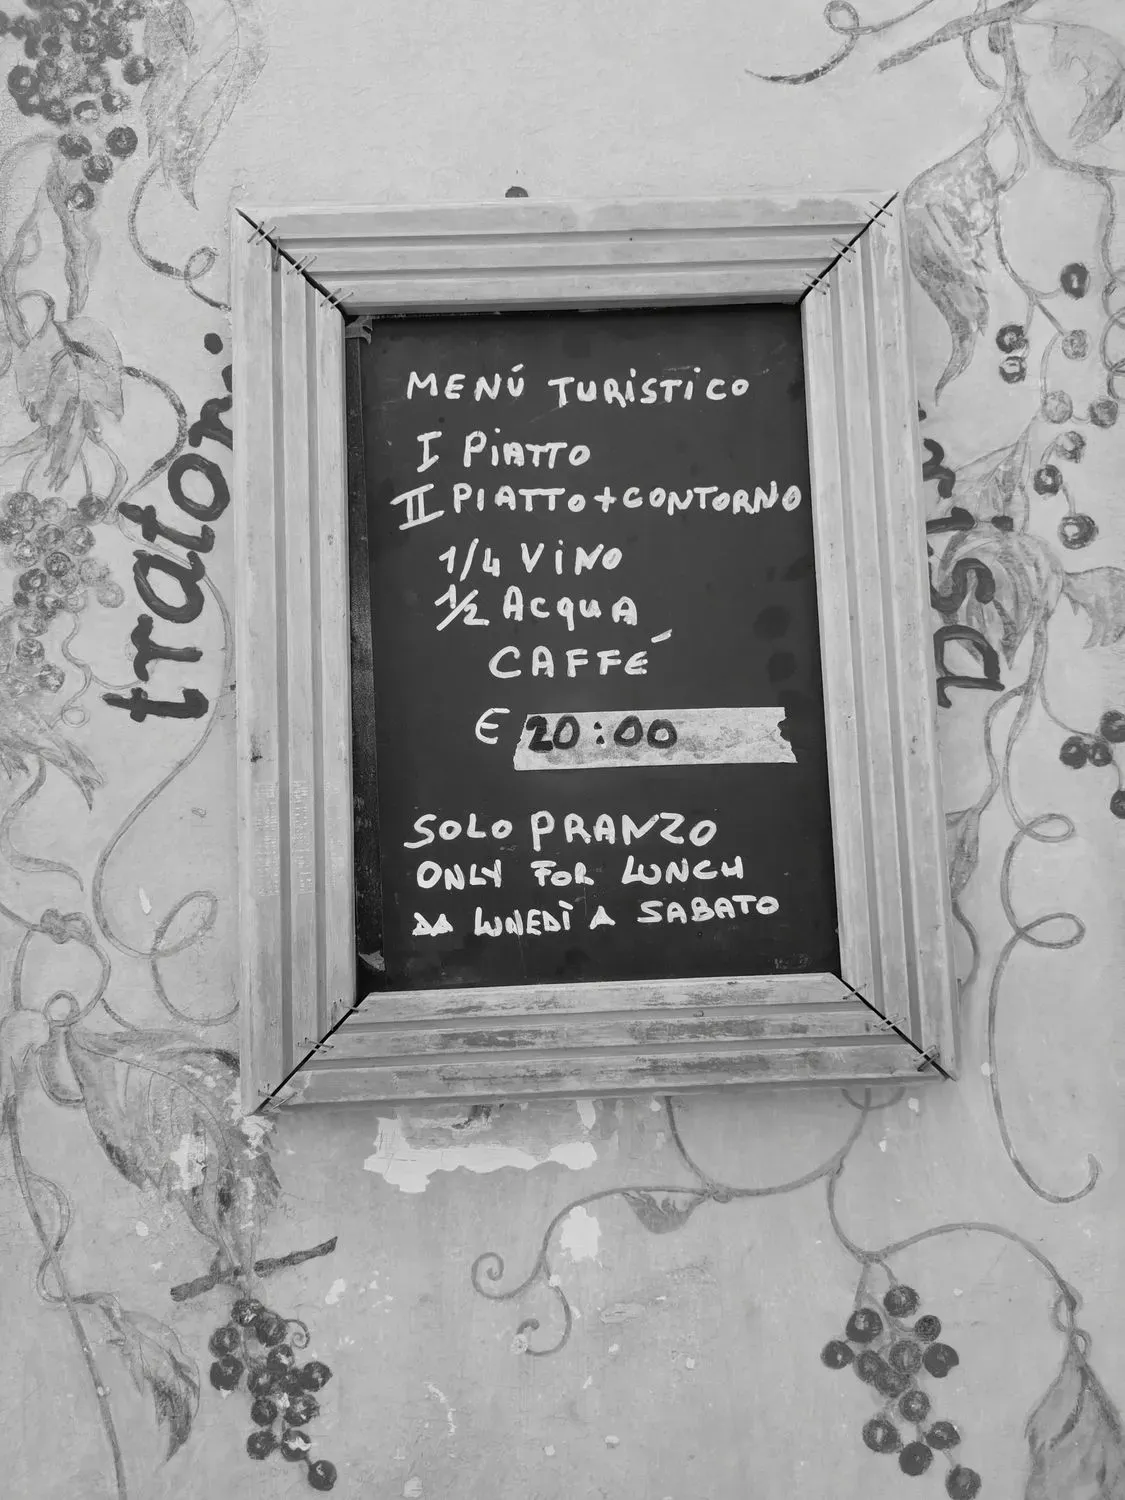 MENÚ TURISTICO
I PIATTO
II PIATTO + CONTORNO
1/4 VINO
1/2 ACQUA
CAFFÉ
€ 20:00
SOLO PRANZO
ONLY FOR LUNCH
DA LUNEDÌ A SABATO